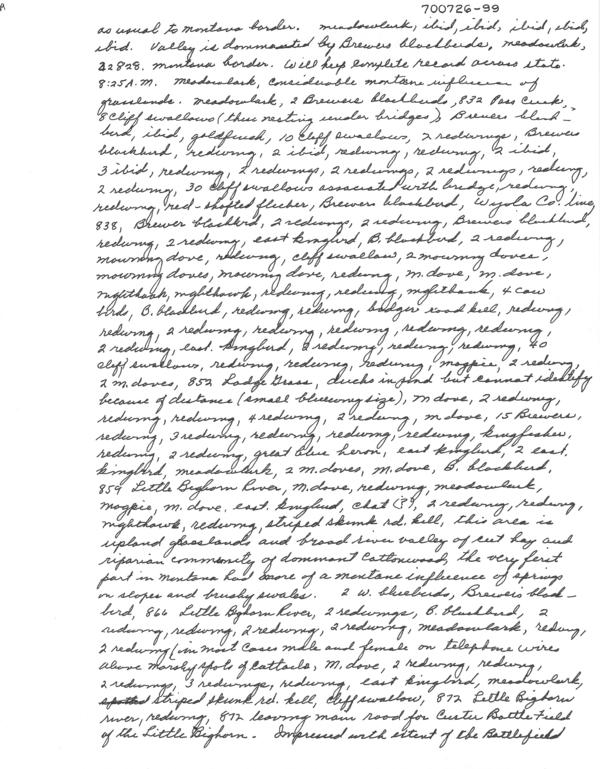 700726-99
as usual to montana border. meadowlark, ibid, ibid, ibid, ibid,
ibid. Valley is dommaated by Brewers blackbirds, meadowlark,
22828. montana border. Will kep complete record across state.
8:25 A.M. meadowlark, considerable montane influence of
grasslands. meadowlark, 2 Brewers blackbirds, 832 Pass Creek,
8 Cliff swallows (thus nesting under bridges), Brewers black-
bird, ibid, goldfinch, 10 cliff swallows, 2 redwings, Brewers
blackbird, redwing, 2 ibid, redwing, redwing, 2 ibid,
3 ibid, redwing, 2 redwings, 2 redwings, 2 redwings, redwing,
2 redwing, 30 cliff swallows associated with bridge, redwing,
redwing, red-shafted flicker, Brewers blackbird, Wyola Co. line,
838, Brewer blackbird, 2 redwings, 2 redwing, Brewers blackbird,
redwing, 2 redwing, east kingbird, B. blackbird, 2 redwing,
mourning dove, redwing, cliff swallow, 2 mourning doves,
mourning doves, mourning dove, redwing, m. dove, m. dove,
nighthawk, nighthawk, redwing, redwing, nighthawk, 4 cow
bird, B. blackbird, redwing, redwing, badger road kill, redwing,
redwing, 2 redwing, redwing, redwing, redwing, redwing,
2 redwing, east. kingbird, 2 redwing, redwing, redwing, 40
cliff swallows, redwing, redwing, redwing, magpie, 2 redwing,
2 m. doves, 852 Lodge Grass, ducks in pond but cannot identify
because of distance (small bluewing size), m dove, 2 redwing,
redwing, redwing, 4 redwing, 2 redwing, m. dove, 15 Brewers,
redwing, 3 redwing, redwing, redwing, redwing, kingfisher,
redwing, 2 redwing, great blue heron, east kingbird, 2 east.
kingbird, meadowlark, 2 m. doves, m. dove, B. blackbird,
859 Little Bighorn River, m. dove, redwing, meadowlark,
magpie, m. dove, east. kingbird, chat (?), 2 redwing, redwing,
nighthawk, redwing, striped skunk rd. kill, this area is
upland grasslands and broad river valley of cut hay and
riparian community of dommant Cottonwood, the very first
part in Montana had more of a montane influence of springs
on slopes and brushy swales. 2 W. bluebirds, Brewers black-
bird, 866 Little Bighorn River, 2 redwings, B. blackbird, 2
redwing, redwing, 2 redwing, 2 redwing, meadowlark, redwing,
2 redwing (in most cases male and female on telephone wires
above marshy spots of cattails, M. dove, 2 redwing, redwing,
2 redwings, 3 redwings, redwing, east kingbird, meadowlark,
striped skunk rd. kill, cliff swallow, 872 Little Bighorn
river, redwing, 872 leaving main road for Custer Battle Field
of the Little Bighorn. Impressed with extent of the Battlefield